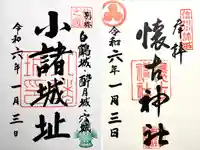 別称
白鶴城 酔月城 穴城
小諸城址
令和六年一月三日
奉拝
懐古神社
令和六年一月三日